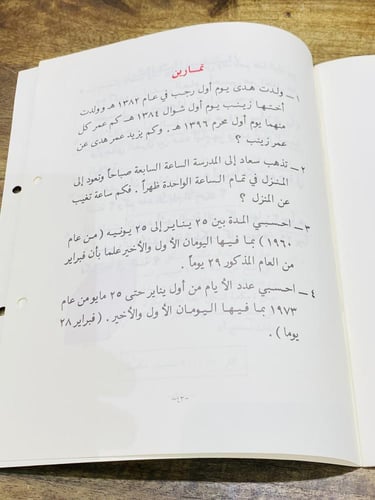 تمارين
١ ــ ولدت هدى يوم أول رجب في عام ١٣٨٢ هـ وولدت
أختها زينب يوم أول شوال ١٣٨٤ هـ ـ كم عمر كل
منهما يوم أول محرم ١٣٩٦ هـ ـ وكم يزيد عمر هدى عن
عمر زينب ؟
٢ ــ تذهب سعاد إلى المدرسة الساعة السابعة صباحاً وتعود إلى
المنزل في تمام الساعة الواحدة ظهراً . فكم ساعة تغيب
عن المنزل ؟
٣ ــ احسبي المدة بين ٢٥ يناير إلى ٢٥ يونيه ( من عام
١٩٦٠ ) بما فيها اليومان الأول والأخير علما بأن فبراير
من العام المذكور ٢٩ يوماً .
٤ ــ احسبي عدد الأيام من أول يناير حتى ٢٥ مايو من عام
١٩٧٣ بما فيها اليومان الأول والأخير . ( فبراير ٢٨
يوما ) .
-٤٣-